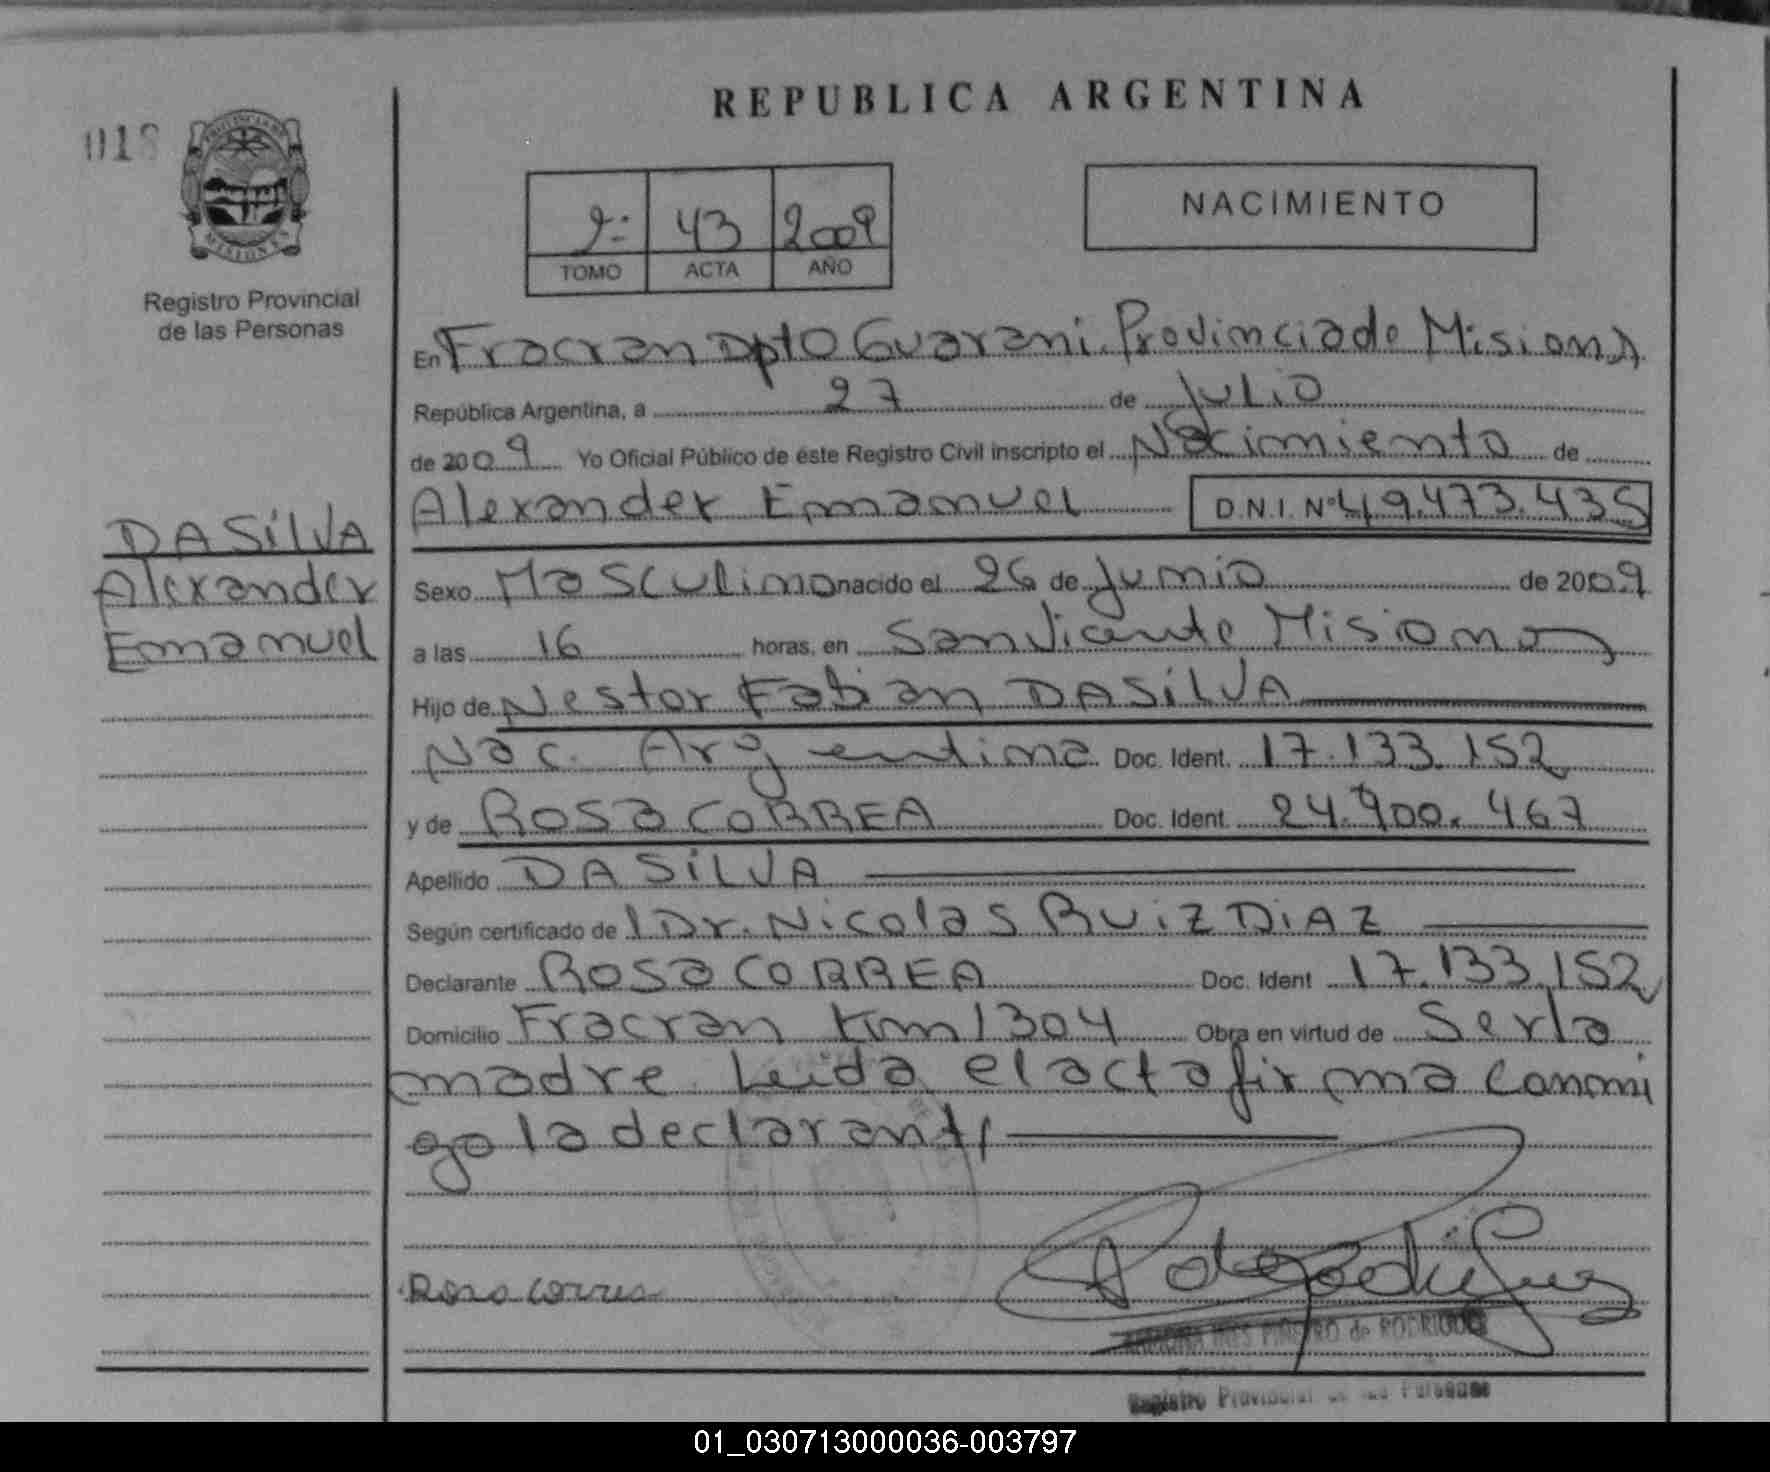 REPUBLICA ARGENTINA
018
PROVINCIA DE
MISIONES
Registro Provincial
de las Personas
2º 43 2009
TOMO ACTA AÑO
NACIMIENTO
En Fracran Dpto Guarani. Provincia de Misiones
República Argentina, a 27 de Julio
de 2009 Yo Oficial Público de éste Registro Civil inscripto el Nacimiento de
Alexander Emanuel D.N.I. Nº 49.473.435
DA SiLVA
Alexander
Emanuel
Sexo Masculino nacido el 26 de Junio de 2009
a las 16 horas, en San Vicente Misiones
Hijo de Nestor Fabian DA SiLVA
Nac. Argentina Doc. Ident. 17.133.152
y de Rosa CORREA Doc. Ident. 24.900.467
Apellido DA SiLVA
Según certificado de l Dr. Nicolas RUiZ DiAZ
Declarante Rosa CORREA Doc. Ident 17.133.152
Domicilio Fracran Km 1304 Obra en virtud de Ser la
madre. Leida el acta firma conmi
go la declarante
Rosa Correa
de RODRIGUEZ
Registro Provincial de las Personas
01_030713000036-003797